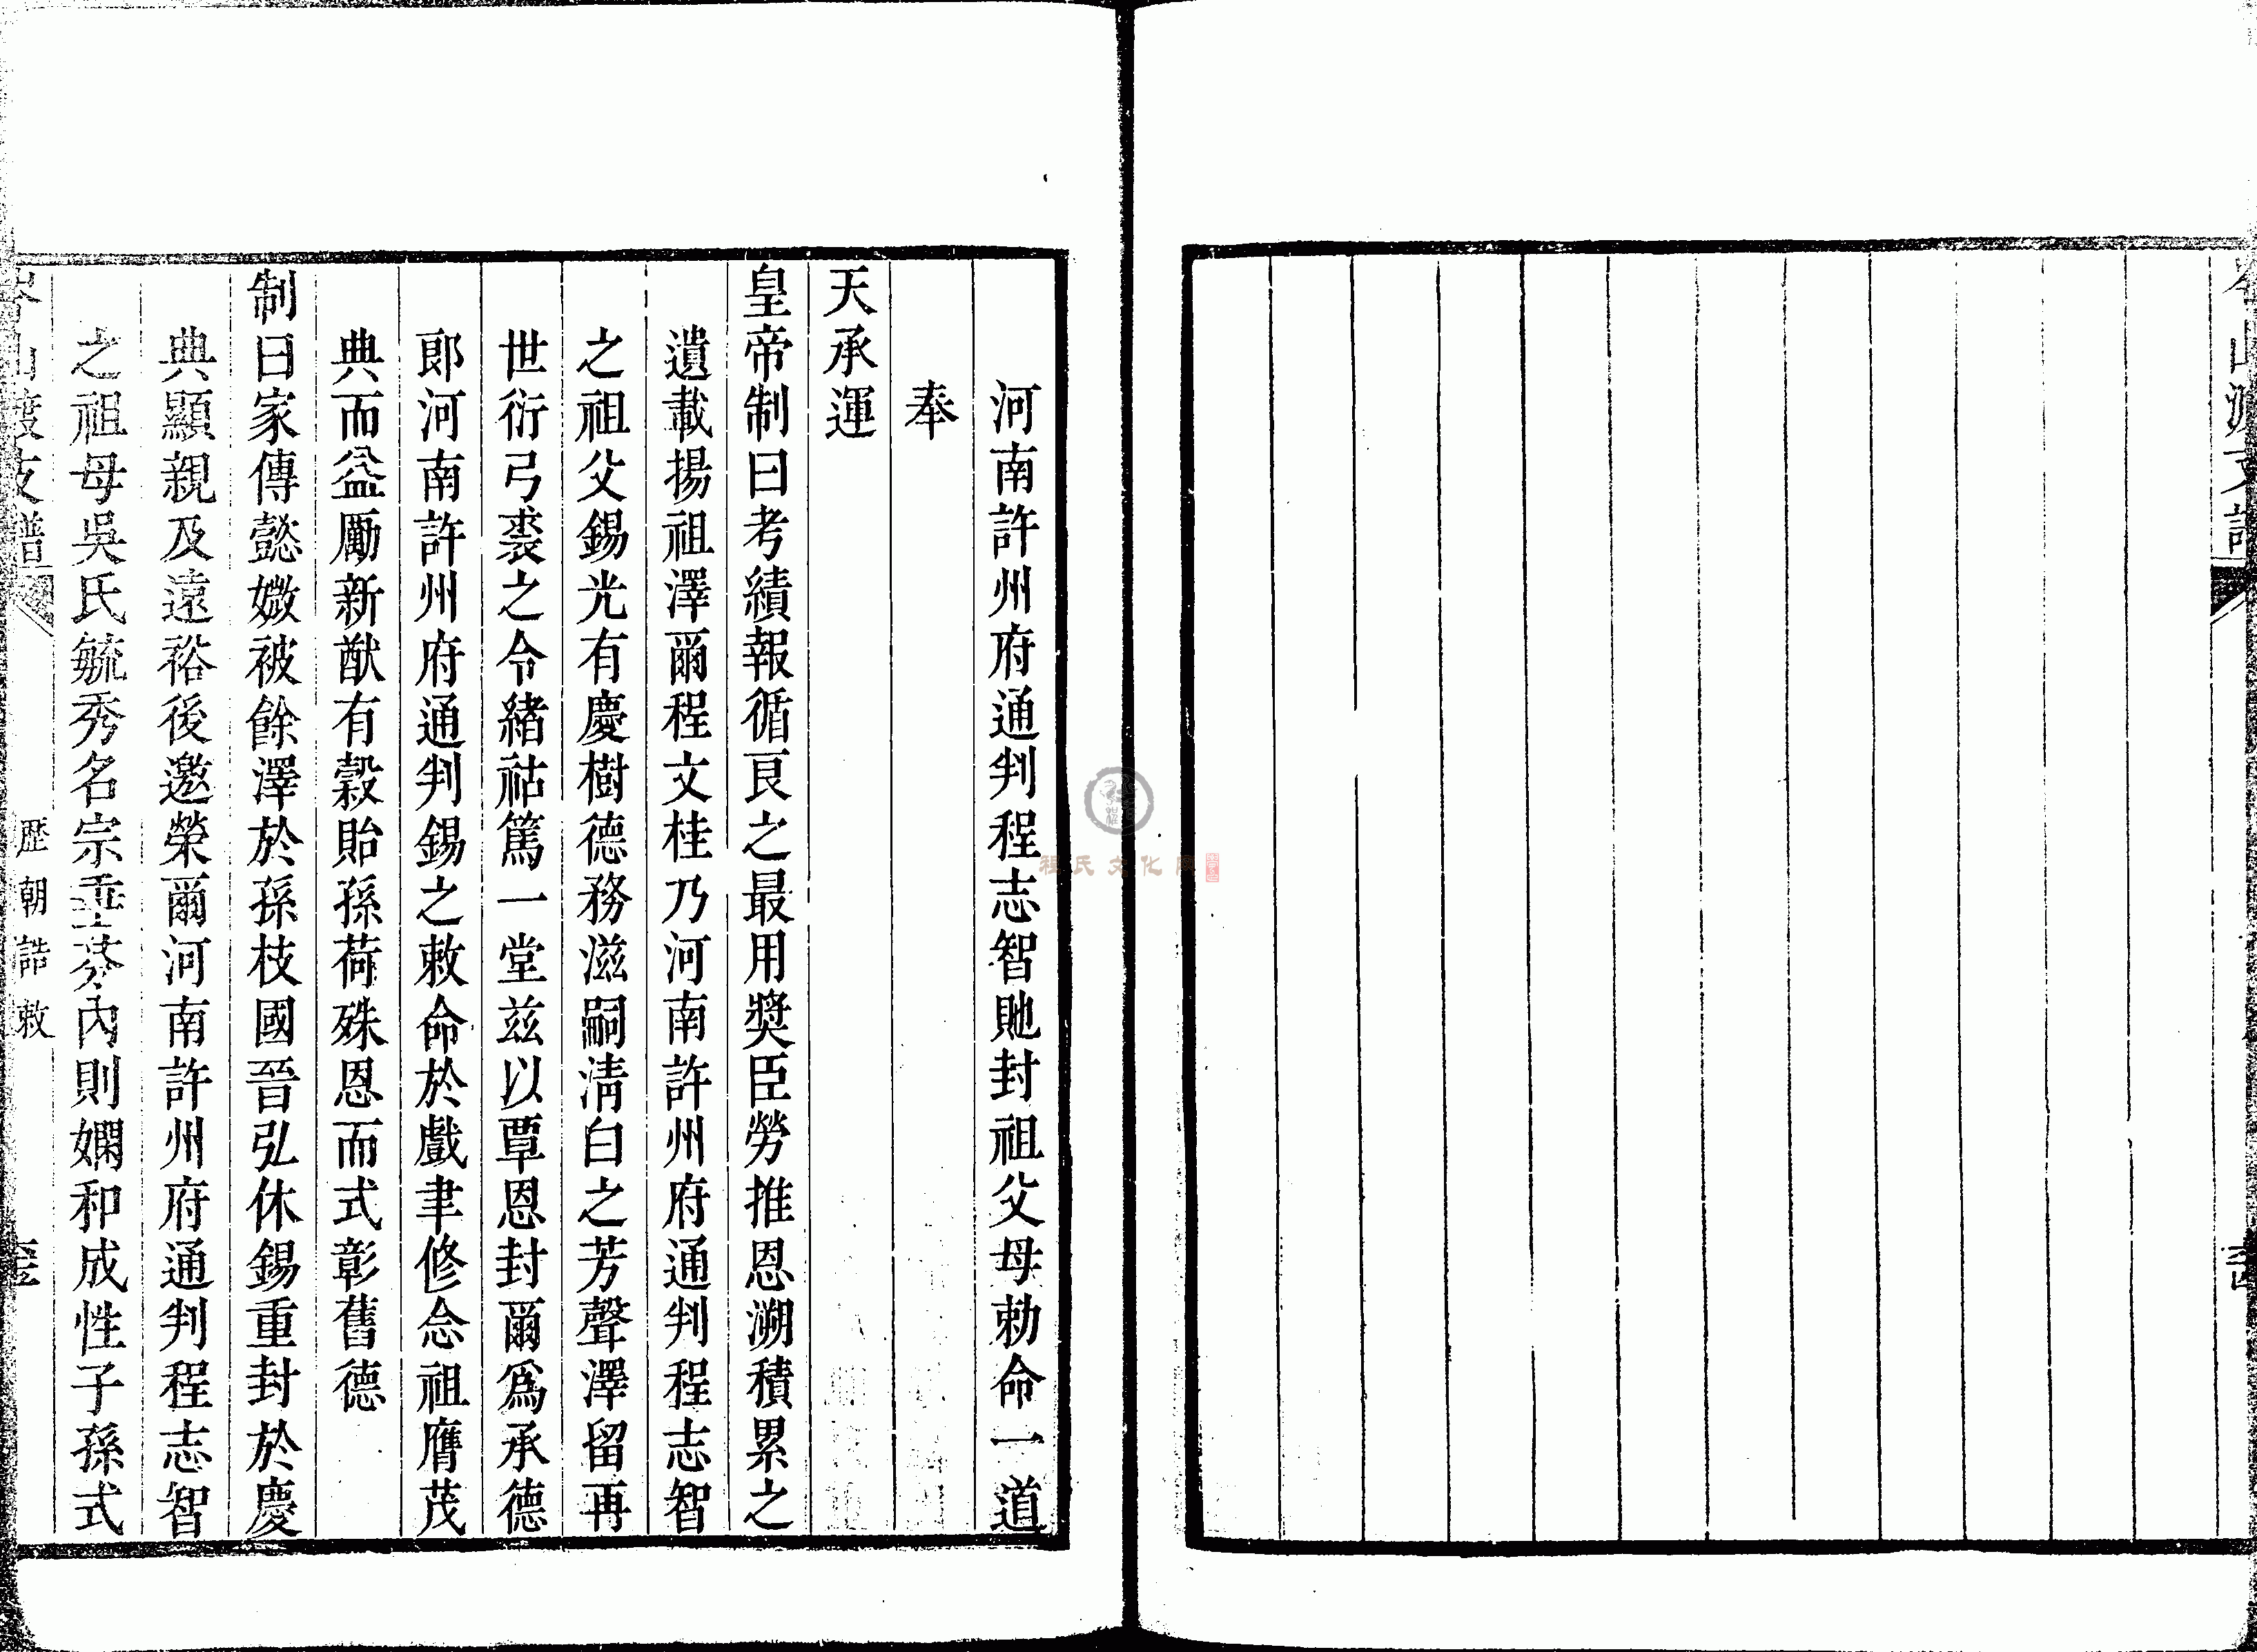 河南許州府通判程志智貤封祖父母勅命一道
奉
天承運
皇帝制曰考績報循良之最用獎臣勞推恩溯積累之
遺載揚祖澤爾程文桂乃河南許州府通判程志智
之祖父錫光有慶樹德務滋嗣淸白之芳聲澤留再
世衍弓裘之令緒祜篤一堂兹以覃恩封爾爲承德
郎河南許州府通判錫之敕命於戲聿修念祖膺茂
典而益勵新猷有穀貽孫荷殊恩而式彰舊德
制曰家傳懿媺被餘澤於孫枝國晉弘休錫重封於慶
典顯親及遠裕後邀榮爾河南許州府通判程志智
之祖母吳氏毓秀名宗垂芬內則嫻和成性子孫式
岑山渡支譜
歷朝誥敕
程氏文化